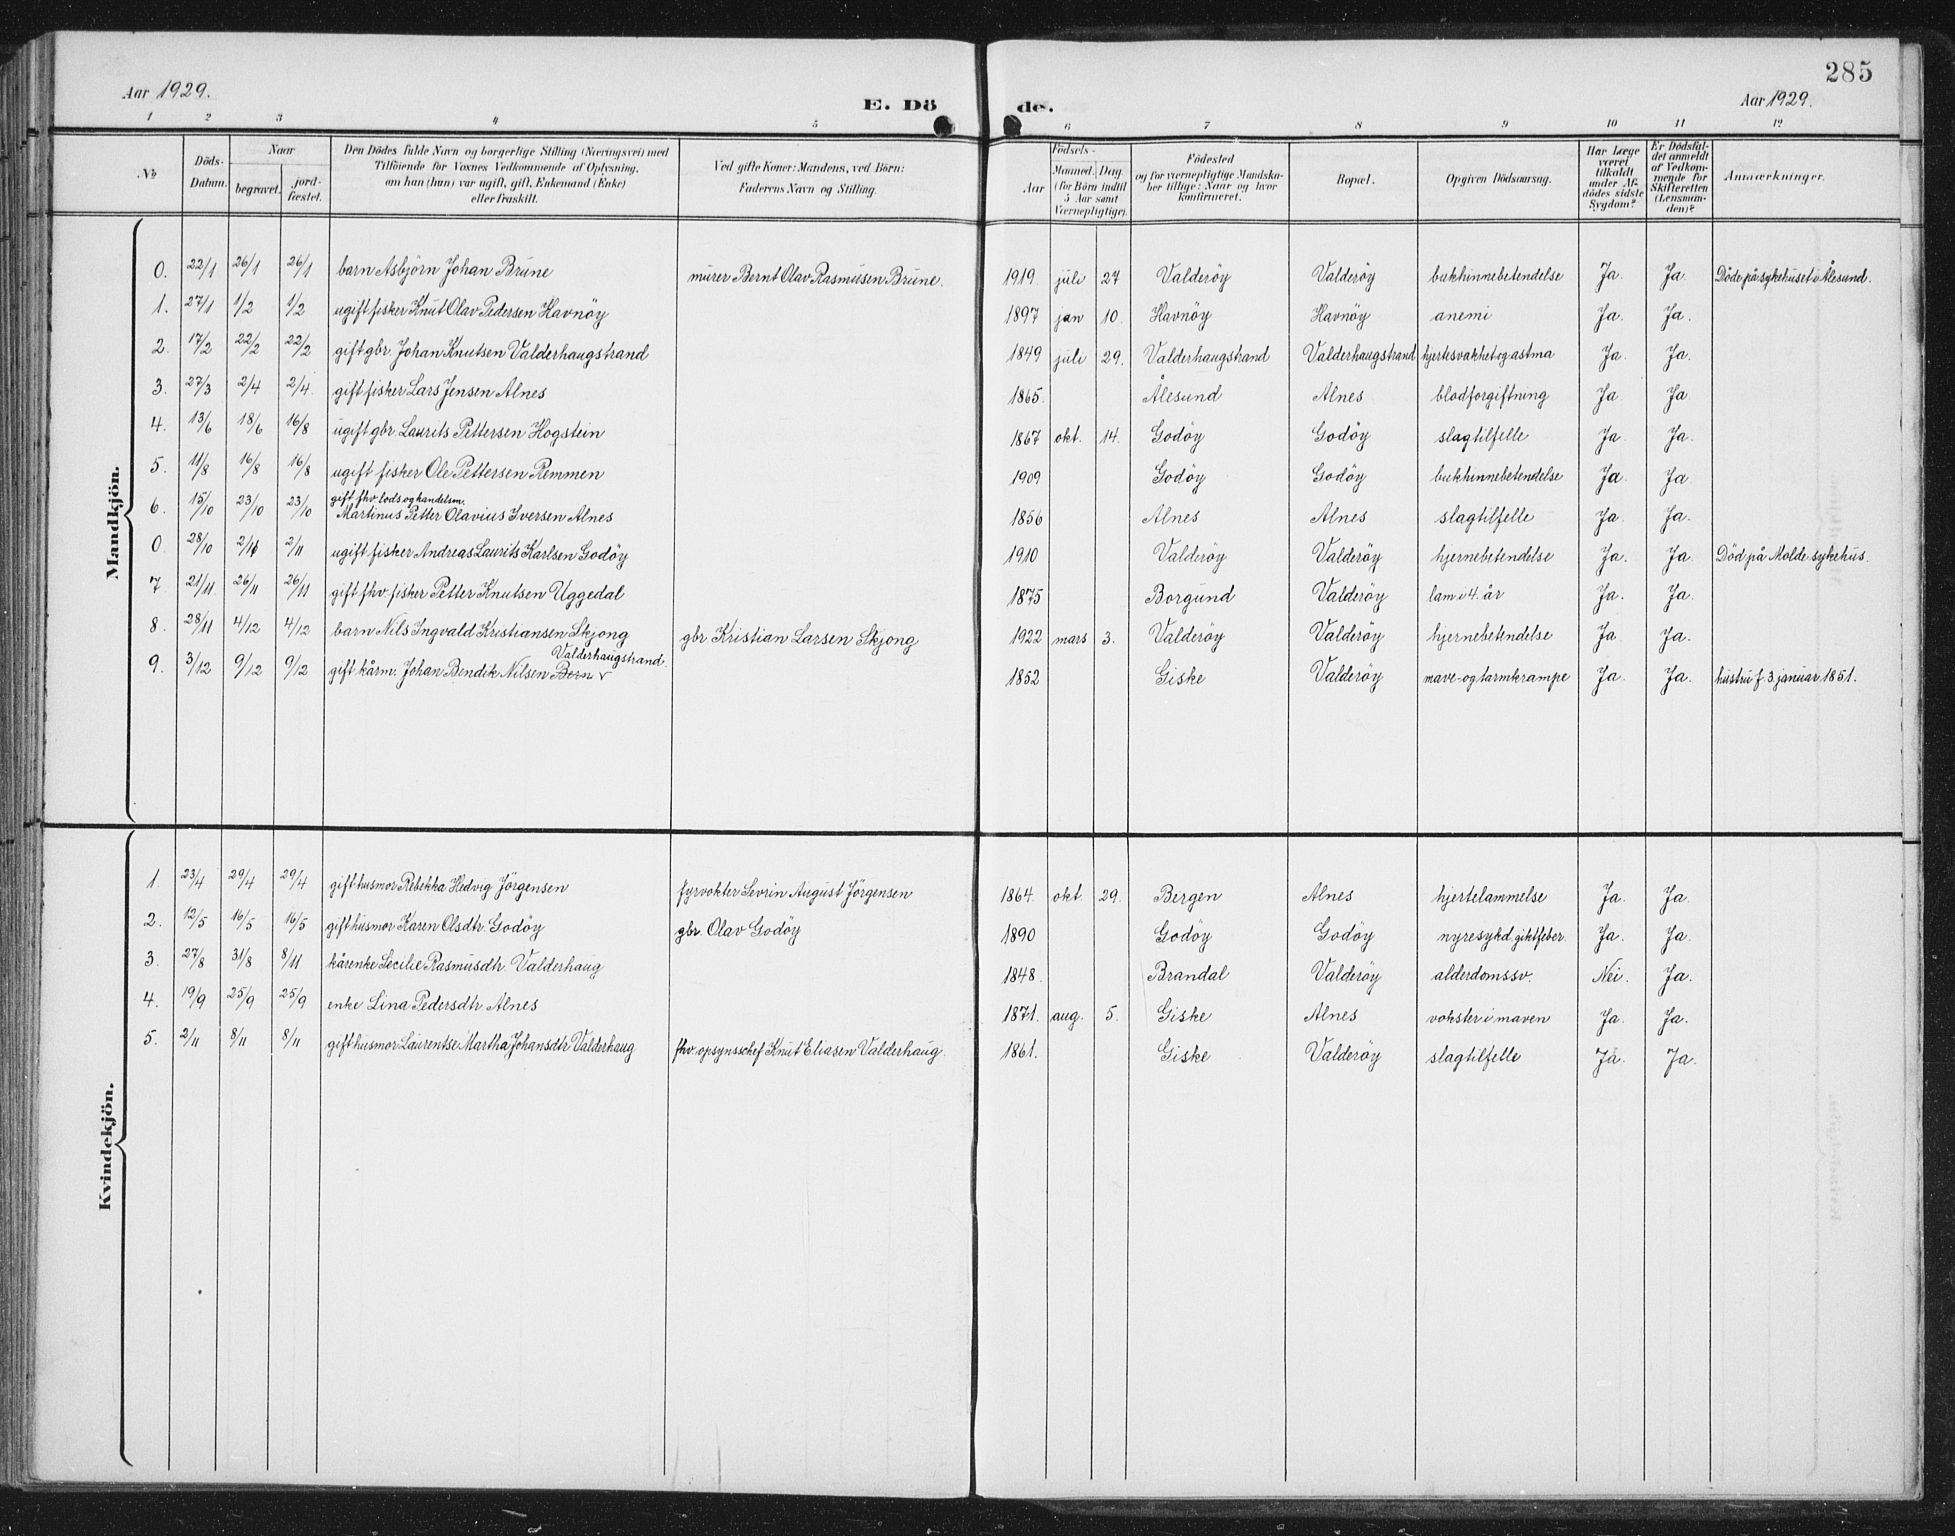 285
Aar 1929.
E. Dö de.
Aar 1929.
1 2 3 4 5 6 7 8 9 10 11 12
No
Döds-Datum.
Naar
begravet.
jord-fæstet.
Den Dödes fulde Navn og borgerlige Stilling (Næringsvei) med
Tilföiende for Voxnes Vedkommende af Oplysning,
om han (hun) var ugift, gift, Enkemand (Enke)
eller fraskilt.
Ved gifte Koner: Mandens, ved Börn:
Faderens Navn og Stilling.
Födsels-
Aar
Maaned. Dag
(for Börn indtil
5 Aar samt
Værnepligtige).
Födested
og for værnepligtige Mandska-
ber tillige: Naar og hvor
konfirmeret.
Bopæl.
Opgiven Dödsaarsag.
Har Læge
været
tilkaldt
under Af-
dödes sidste
Sygdom?
Er Dödsfal-
det anmeldt
af Vedkom-
mende for
Skifteretten
(Lensman-
den)?
Anmærkninger.
Mandkjön.
0. 22/1 26/1 26/1 barn Asbjörn Johan Brune murer Bernt Olav Rasmusen Brune. 1919. juli 27 Valderöy Valderöy bukhinnebetendelse Ja. Ja. Döde på sykehuset i Ålesund.
1. 27/1 1/2 1/2 ugift fisker Knut Olav Pedersen Havnöy 1897 jan 10. Havnöy Havnöy anemi Ja. Ja.
2. 17/2 22/2 22/2 gift gbr. Johan Knutsen Valderhaugstrand 1849 juli 29. Valderhaugstrand Valderhaugstrand hjertesvakhet og astma Ja. Ja.
3. 27/3 2/4 2/4. gift fisker Lars Jensen Alnes 1865. Ålesund Alnes blodforgiftning Ja. Ja.
4. 13/6 18/6 16/8 ugift gbr Laurits Pettersen Hogstein 1867 okt. 14. Godöy Godöy slagtilfelle Ja. Ja.
5. 11/8 16/8 16/8 ugift fisker Ole Pettersen Remmen 1909 Godöy Godöy bukhinnebetendelse Ja. Ja.
6. 15/10 23/10 23/10 gift fhv. lods og handelsm.
Martinus Petter Olavius Iversen Alnes 1856 Alnes Alnes slagtilfelle Ja. Ja.
0. 28/10 2/11 2/11 ugift fisker Andreas Laurits Karlsen Godöy 1910 Valderöy Valderöy hjernebetendelse Ja. Ja. Död på Molde sykehus.
7 21/11 26/11 26/11 gift fhv. fisker Petter Knutsen Uggedal 1875 Borgund Valderöy lam i 4. år Ja. Ja.
8. 28/11 4/12 4/12 barn Nils Ingvald Kristiansen Skjong gbr Kristian Larsen Skjong 1922 mars 3. Valderöy Valderöy hjernebetendelse Ja. Ja.
Valderhaugstrand.
9. 3/12 9/12 9/12 gift kårm. Johan Bendik Nilsen 1852 Giske Valderöy mave- og tarmkrampe Ja. Ja. hustru f. 3. januar 1851.
Kvindekjön.
1. 23/4 29/4 29/4 gift husmor Rebekka Hedvig Jörgensen fyrvokter Sevrin August Jörgensen 1864. okt. 29. Bergen Alnes hjertelammelse Ja. Ja.
2. 12/5 16/5 16/5 gift husmor Karen Olsdtr. Godöy gbr. Olav Godöy 1890 Godöy Godöy nyresykd. giktfeber. Ja. Ja.
3. 27/8 31/8 8/11 kårenke Secilie Rasmusdtr. Valderhaug 1848. Brandal Valderöy alderdomssv. Nei. Ja.
4. 19/9 25/9 25/9 enke Lina Pedersdtr Alnes 1871. aug. 5. Giske Alnes vokster i maven Ja. Ja.
5. 2/11 8/11 8/11 gift husmor Laurentse Martha Johansdtr Valderhaug fhv. opsynsschef Knut Eliasen Valderhaug. 1861. Giske Valderöy slagtilfelle Ja. Ja.